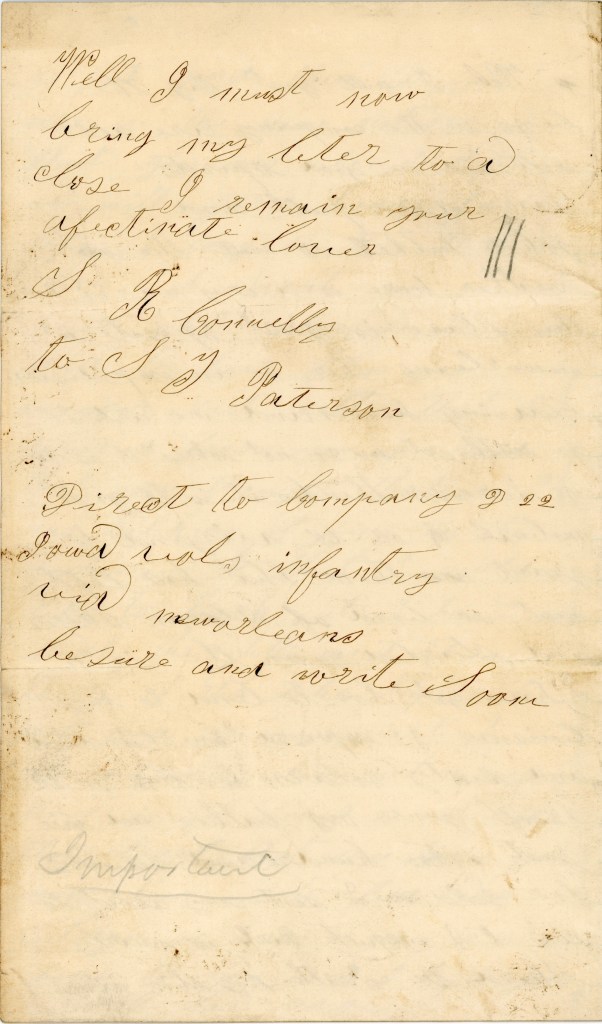 Well I must now
bring my leter to a
close I remain your
afectinate lover
S R Connelly
to S J Paterson
Direct to Company D 22
Iowa vols infantry
via neworleans
besure and write Soon
Important